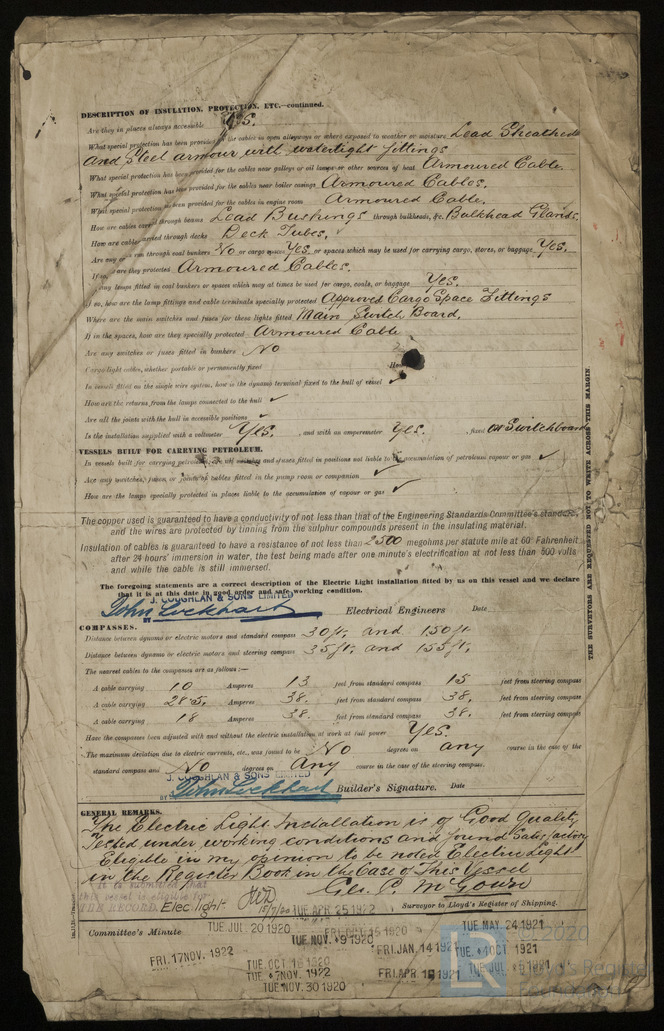 DESCRIPTION OF INSULATION, PROTECTION, ETC.—continued.
Are they in places always accessible Yes.
What special protection has been provided for the cables in open alleyways or where exposed to weather or moisture Lead Sheathed
and Steel armour with watertight fittings
What special protection has been provided for the cables near galleys or oil lamps or other sources of heat Armoured Cable.
What special protection has been provided for the cables near boiler casings Armoured Cables.
What special protection has been provided for the cables in engine room Armoured Cable.
How are cables carried through beams Lead Bushings through bulkheads, &c. Bulkhead Glands.
How are cables carried through decks Deck Tubes.
Are any cables run through coal bunkers No or cargo spaces Yes. or spaces which may be used for carrying cargo, stores, or baggage Yes.
If so, how are they protected Armoured Cables.
Are any lamps fitted in coal bunkers or spaces which may at times be used for cargo, coals, or baggage Yes.
If so, how are the lamp fittings and cable terminals specially protected Approved Cargo Space Fittings
Where are the main switches and fuses for these lights fitted Main Switch Board.
If in the spaces, how are they specially protected Armoured Cable
Are any switches or fuses fitted in bunkers No
Cargo light cables, whether portable or permanently fixed
In vessels fitted on the single wire system, how is the dynamo terminal fixed to the hull of vessel ✓
How are the returns from the lamps connected to the hull ✓
Are all the joints with the hull in accessible positions ✓
Is the installation supplied with a voltmeter Yes. , and with an amperemeter Yes. , fixed on Switchboard
VESSELS BUILT FOR CARRYING PETROLEUM.
In vessels built for carrying petroleum, are all switches and fuses fitted in positions not liable to the accumulation of petroleum vapour or gas ✓
Are any switches, fuses, or joints of cables fitted in the pump room or companion ✓
How are the lamps specially protected in places liable to the accumulation of vapour or gas ✓
The copper used is guaranteed to have a conductivity of not less than that of the Engineering Standards Committee's standard,
and the wires are protected by tinning from the sulphur compounds present in the insulating material.
Insulation of cables is guaranteed to have a resistance of not less than 2500 megohms per statute mile at 60° Fahrenheit
after 24 hours' immersion in water, the test being made after one minute's electrification at not less than 500 volts
and while the cable is still immersed.
The foregoing statements are a correct description of the Electric Light installation fitted by us on this vessel and we declare
that it is at this date in good order and safe working condition.
J. COUGHLAN & SONS LIMITED
BY John Lockhart Electrical Engineers Date
COMPASSES.
Distance between dynamo or electric motors and standard compass 30ft. and 150ft
Distance between dynamo or electric motors and steering compass 35ft. and 155ft.
The nearest cables to the compasses are as follows:—
A cable carrying 10 Amperes 13 feet from standard compass 15 feet from steering compass
A cable carrying 28.5. Amperes 38. feet from standard compass 38. feet from steering compass
A cable carrying 18 Amperes 38. feet from standard compass 38. feet from steering compass
Have the compasses been adjusted with and without the electric installation at work at full power Yes.
The maximum deviation due to electric currents, etc., was found to be No degrees on any course in the case of the
standard compass and No degrees on Any course in the case of the steering compass.
J. COUGHLAN & SONS LIMITED
BY John Lockhart Builder's Signature. Date
GENERAL REMARKS.
The Electric Light Installation is of Good Quality
Tested under working conditions and found Satisfactory
Eligible in my opinion to be noted Electric Light
in the Register Book in the Case of This Vessel
Geo. P. McGown
Surveyor to Lloyd's Register of Shipping.
It is submitted that
this vessel is eligible for
THE RECORD. Elec light 15/7/20 TUE APR 25 1922
Committee's Minute TUE JUL 20 1920 TUE MAY 24 1921
TUE. NOV. 9 1920 FRI. JAN. 14 1921 TUE. 4 OCT 1921
FRI. 17 NOV. 1922
TUE. 7 NOV. 1922 FRI. APR 1921
TUE NOV. 30 1920
THE SURVEYORS ARE REQUESTED NOT TO WRITE ACROSS THIS MARGIN
LR
Lloyd's Register
Foundation
2020